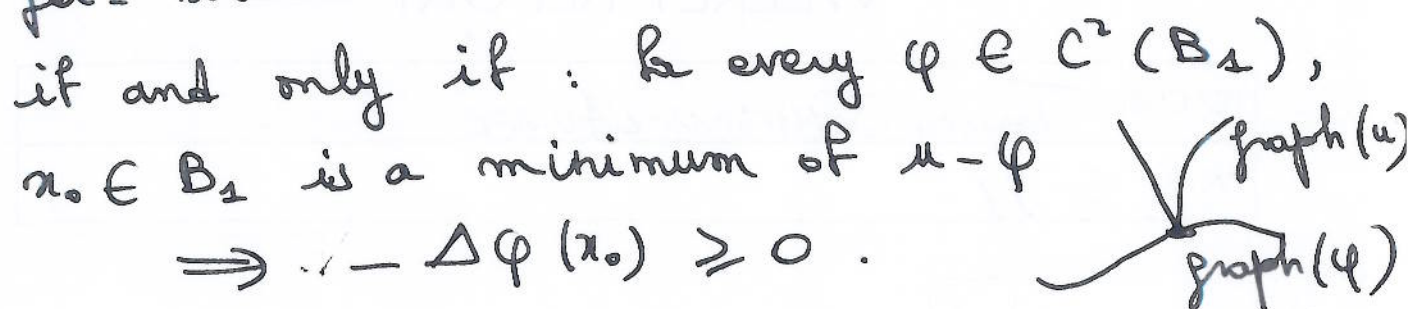 if and only if : for every φ ∈ C² (B₁),
x₀ ∈ B₁ is a minimum of u - φ graph (u)
⟹ - Δφ (x₀) ⩾ 0 . graph (φ)